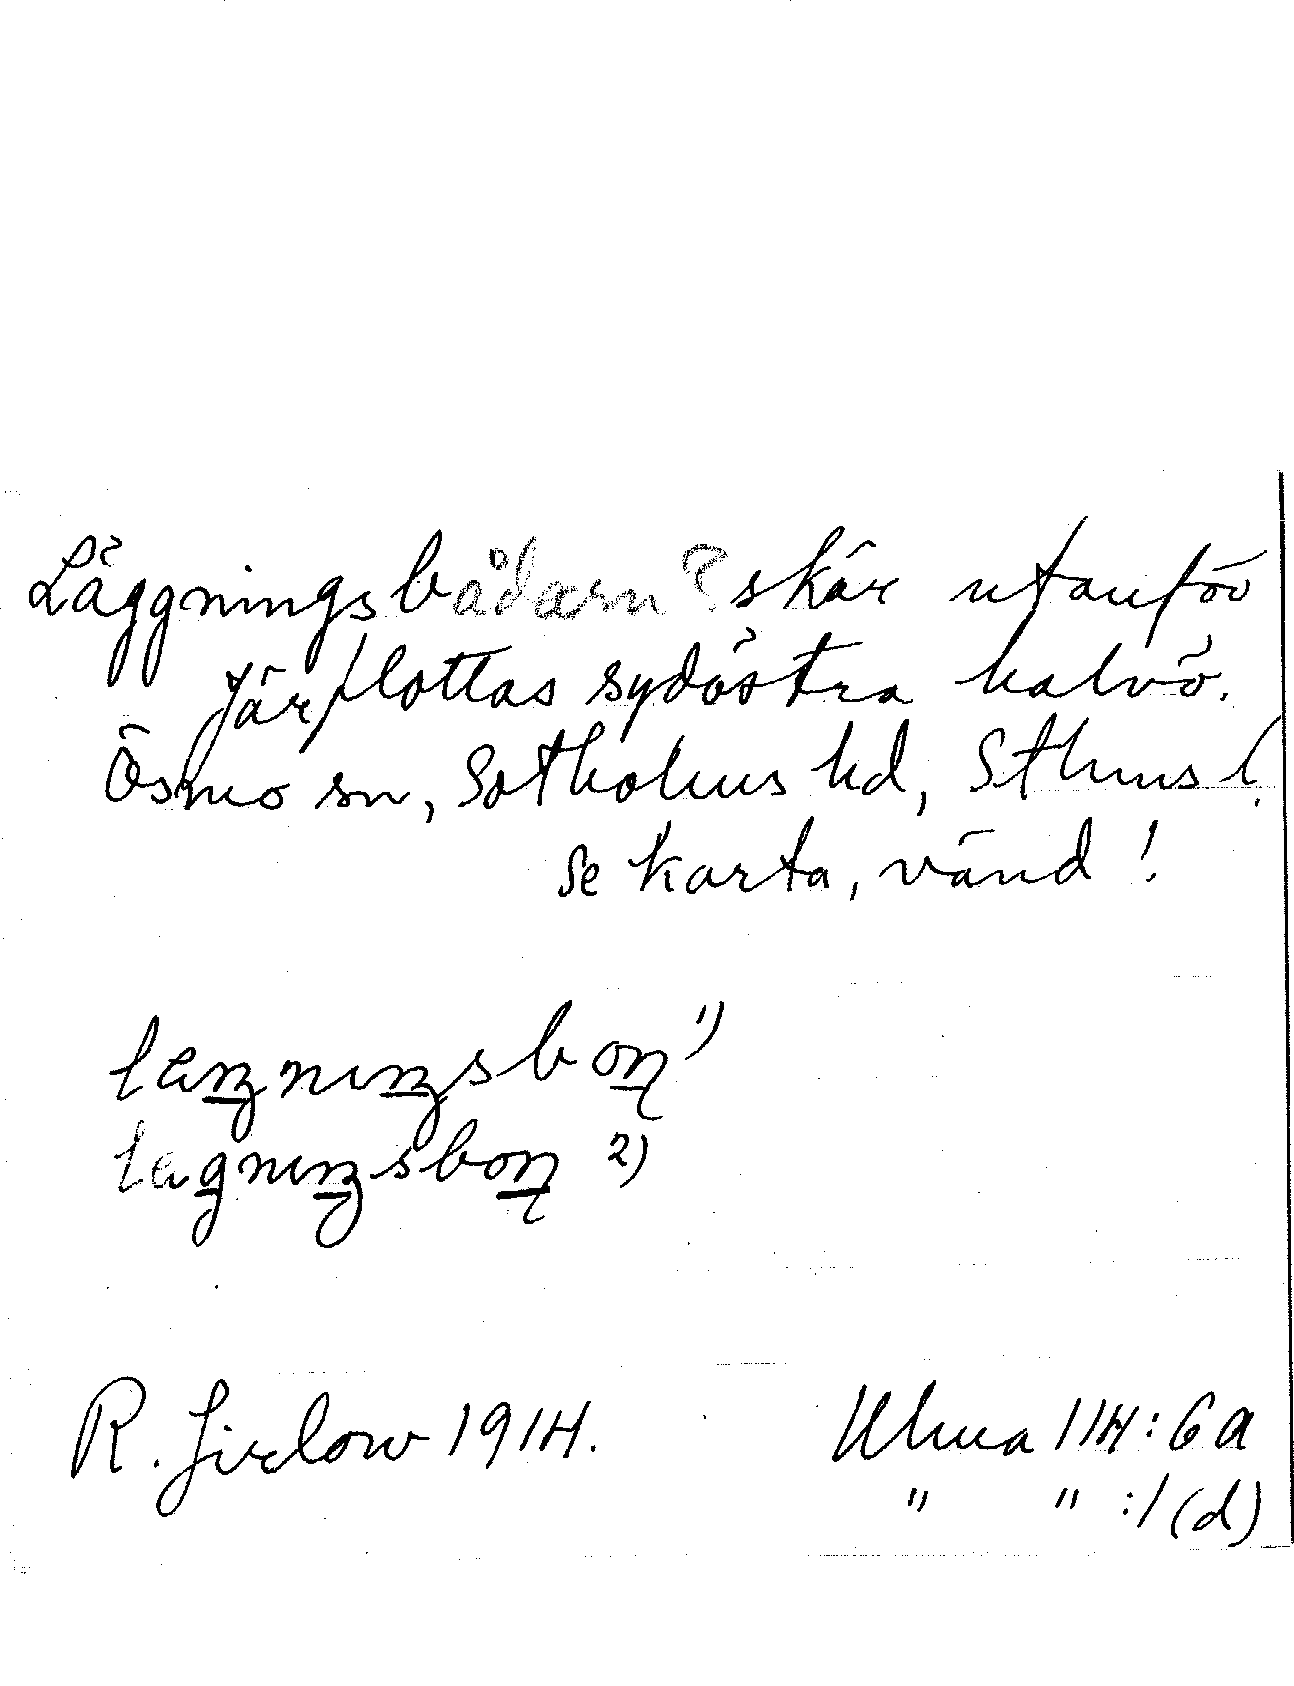 Läggningsbådarn? skär utanför
Järflottas sydöstra halvö.
Ösmo sn, Sotholms hd, Sthms l.
se karta, vänd!
læŋnɩŋsboꞃ 1)
lægnɩŋsboꞃ 2)
R. Jirlow 1914.
Ulma 114:6a
" " :1(d)